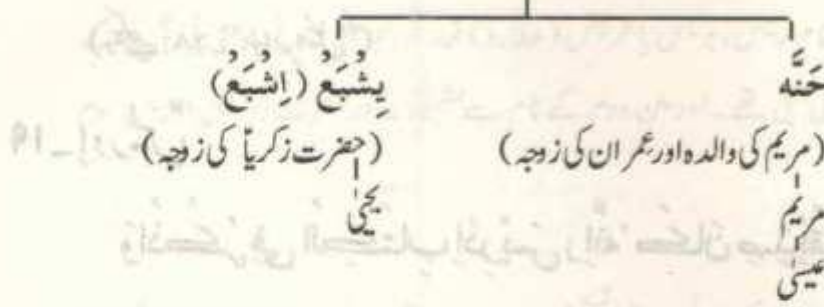 حَنَّه
(مریم کی والدہ اور عمران کی زوجہ)
مریم
عیسیٰ
یِشْبَعْ (اِشْبَعْ)
(حضرت زکریاؑ کی زوجہ)
یحییٰ